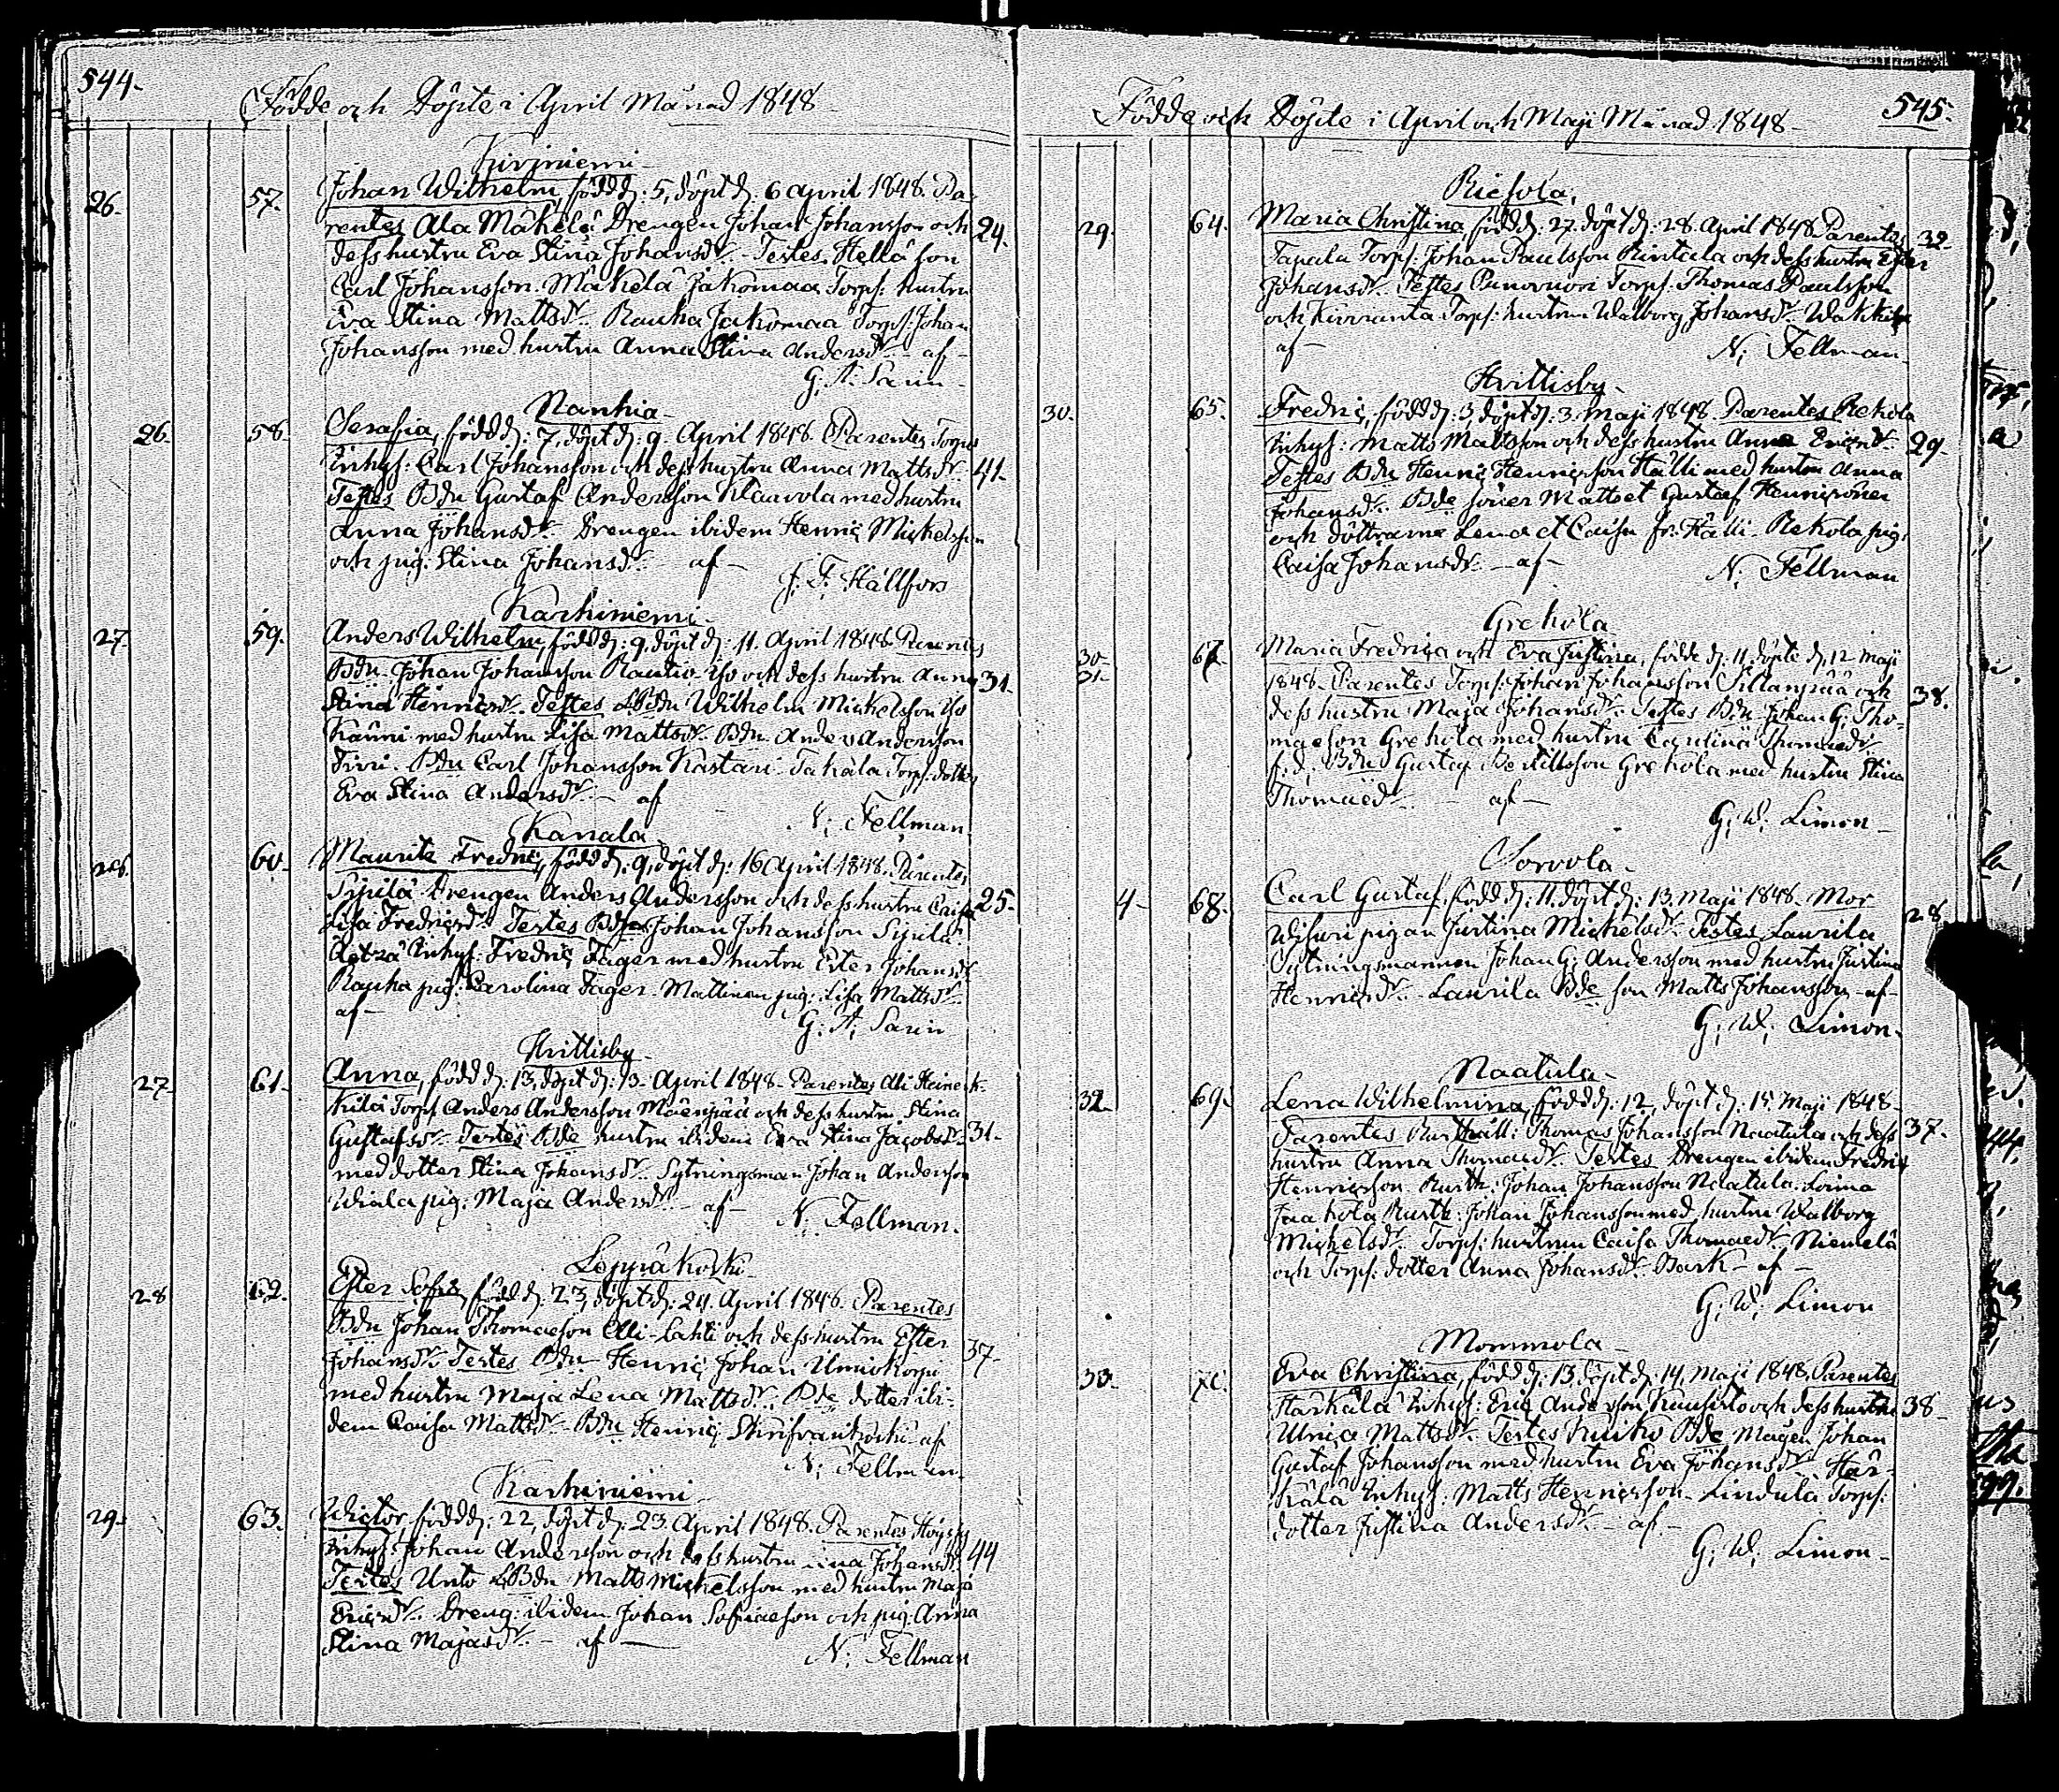 544.
Födde och Döpte i April Månad 1848
Kiviniemi
26. 57. Johan Wilhelm, född d. 5, döpt d. 6 April 1848. Pa-
rentes Ala Mäkelä Drengen Johan Johansson och 24.
dess hustru Eva Stina Johansdr. Testes Hellä son
Carl Johansson. Mäkelä Jakomaa Torp: hustru
Eva Stina Mattsdr. Rauha Jakomaa Torp: Johan
Johansson med hustru Anna Stina Andersdr. - af -
G: A: Sarin
Nanhia
26. 58. Serafia, född d: 7, döpt d: 9. April 1848. Parentes
Inhys: Carl Johansson och dess hustru Anna Mattsdr. 41.
Testes Bdn Gustaf Andersson Klaavola med hustru
Anna Johansdr. Drengen ibidem Henric Mickelsson
och pig. Stina Johansdr. - af -
J: F: Hällfors
Karhiniemi
27. 59. Anders Wilhelm, född d: 9, döpt d: 11. April 1848. Parentes
Bdn Johan Johansson Rautio Iso och dess hustru Anna 31.
Stina Henricsdr. Testes LBdn Wilhelm Mickelsson Iso
Känni med hustru Lisa Mattsdr. Bdn Anders Andersson
Bdn Carl Johansson Kastari Takala Torp. dotter
Eva Stina Andersdr. - af
N: Fellman
Kanala
28. 60. Mauritz Fredric, född d: 9, döpt d: 16 April 1848. Parentes
Sipilä Drengen Anders Andersson och dess hustru Caisa 25.
Lisa Fredricsdr. Testes Johan Johansson Sipilä
Inhys: Fredric Fager med hustru Ester Johansdr.
Rauha pig: Carolina Fager. Mattinen pig: Lisa Mattsdr.
af -
G: A: Sarin
Hvittisby
27. 61. Anna, född d: 13, döpt d: 13. April 1848. Parentes Ali Heinek-
kilä Torp Anders Andersson Mäenpää och dess hustru Stina
Gustafsdr. Testes Bde hustru ibidem Eva Stina Jacobsdr. 31.
med dotter Stina Johansdr. Sytningsman Johan Andersson
Uciala pig. Maja Andersdr. - af -
N: Fellman.
Leppäkoski
28 62. Ester Sofia, född d: 23, döpt d: 24. April 1848. Parentes
Bdn Johan Thomasson Alli-Lahti och dess hustru Ester
Johansdr. Testes Bdn Henric Johan Uusikorpi 37.
med hustru Maja Lena Mattsdr. Bde dotter ibi-
dem Caisa Mattsdr. Bdn Henric af
N: Fellman.
Karhiniemi
29. 63. Wictor, född d: 22, döpt d: 23. April 1848. Parentes
Inhys: Johan Andersson och dess hustru Johansdr. 44
Testes Unto LBdn Matts Mickelsson med hustru Maja
Ericsdr. Dreng: ibidem Johan Sofiaeson och pig: Anna
Stina Majasdr. - af -
N: Fellman
545.
Födde och Döpte i April och Maji Månad 1848
Riesola
29. 64. Maria Christina, född d: 27. döpt d: 28. April 1848 Parentes 32.
Tapala Torp: Johan Paulsson Rintala och dess hustru Ester
Johansdr. Testes Punovuori Torp: Thomas Paulsson
och Kivvranta Torp: hustrun Walborg Johansdr.
af -
N: Fellman
Hvittisby
30. 65. Fredric, född d: 3, döpt d: 3. Maji 1848. Parentes Rekola
Inhys: Matts Mattsson och dess hustru Anna Ericsdr. 29.
Testes Bdn Henric Henricsson Hälli med hustru Anna
Johansdr. Bde söner Matts et Gustaf Henricsöner
och döttrarne Lena et Caisa fr. Hälli. Rekola pig.
Caisa Johansdr. - af -
N: Fellman
Grekola
30. 31. 67. Maria Fredrica och Eva Justina, födde d: 11. döpte d: 12 Maji
1848. Parentes Torp: Johan Johansson Sillanpää och 38.
dess hustru Maja Johansdr. Testes Bdn Johan G: Tho-
maeson Grekola med hustru Carolina Thomaedr.
f: d: Bdn Gustaf Bertillsson Grekola med hustru Stina
Thomaedr. - af -
G: W: Limon
Sorvola
4. 68. Carl Gustaf, född d: 11. döpt d: 13. Maji 1848. Mor 28.
Wisuri pigan Justina Mickelsdr. Testes Laurila
Sytningsmannen Johan G: Andersson med hustru Justina
Henricsdr. - Laurila Bde son Matts Johansson - af -
G: W: Limon.
Naatula
32. 69. Lena Wilhelmina, född d: 12, döpt d: 15. Maji 1848.
Parentes Rusthåll: Thomas Johansson Naatula och dess 37.
hustru Anna Thomaedr. Testes Drengen ibidem Fredric
Henricsson. Rusth: Johan Johansson Naatula. Loima
Jaakola Rusth: Johan Johansson med hustru Walborg
Mickelsdr. Torp: hustrun Caisa Thomaedr. Niemelä
och Torp: dotter Anna Johansdr. Bark - af -
G: W: Limon
Mommola
33. Eva Christina, född d: 13. döpt d: 14. Maji 1848. Parentes
Härkälä Inhys: Eric Andersson Kuusisto och dess hustru 38.
Ulrica Mattsdr. Testes Kuikko Bde Mågen Johan
Gustaf Johansson med hustru Eva Johansdr. Här-
kälä Inhys: Matts Henricsson. Lindula Torp:
dotter Justina Andersdr. - af -
G: W: Limon